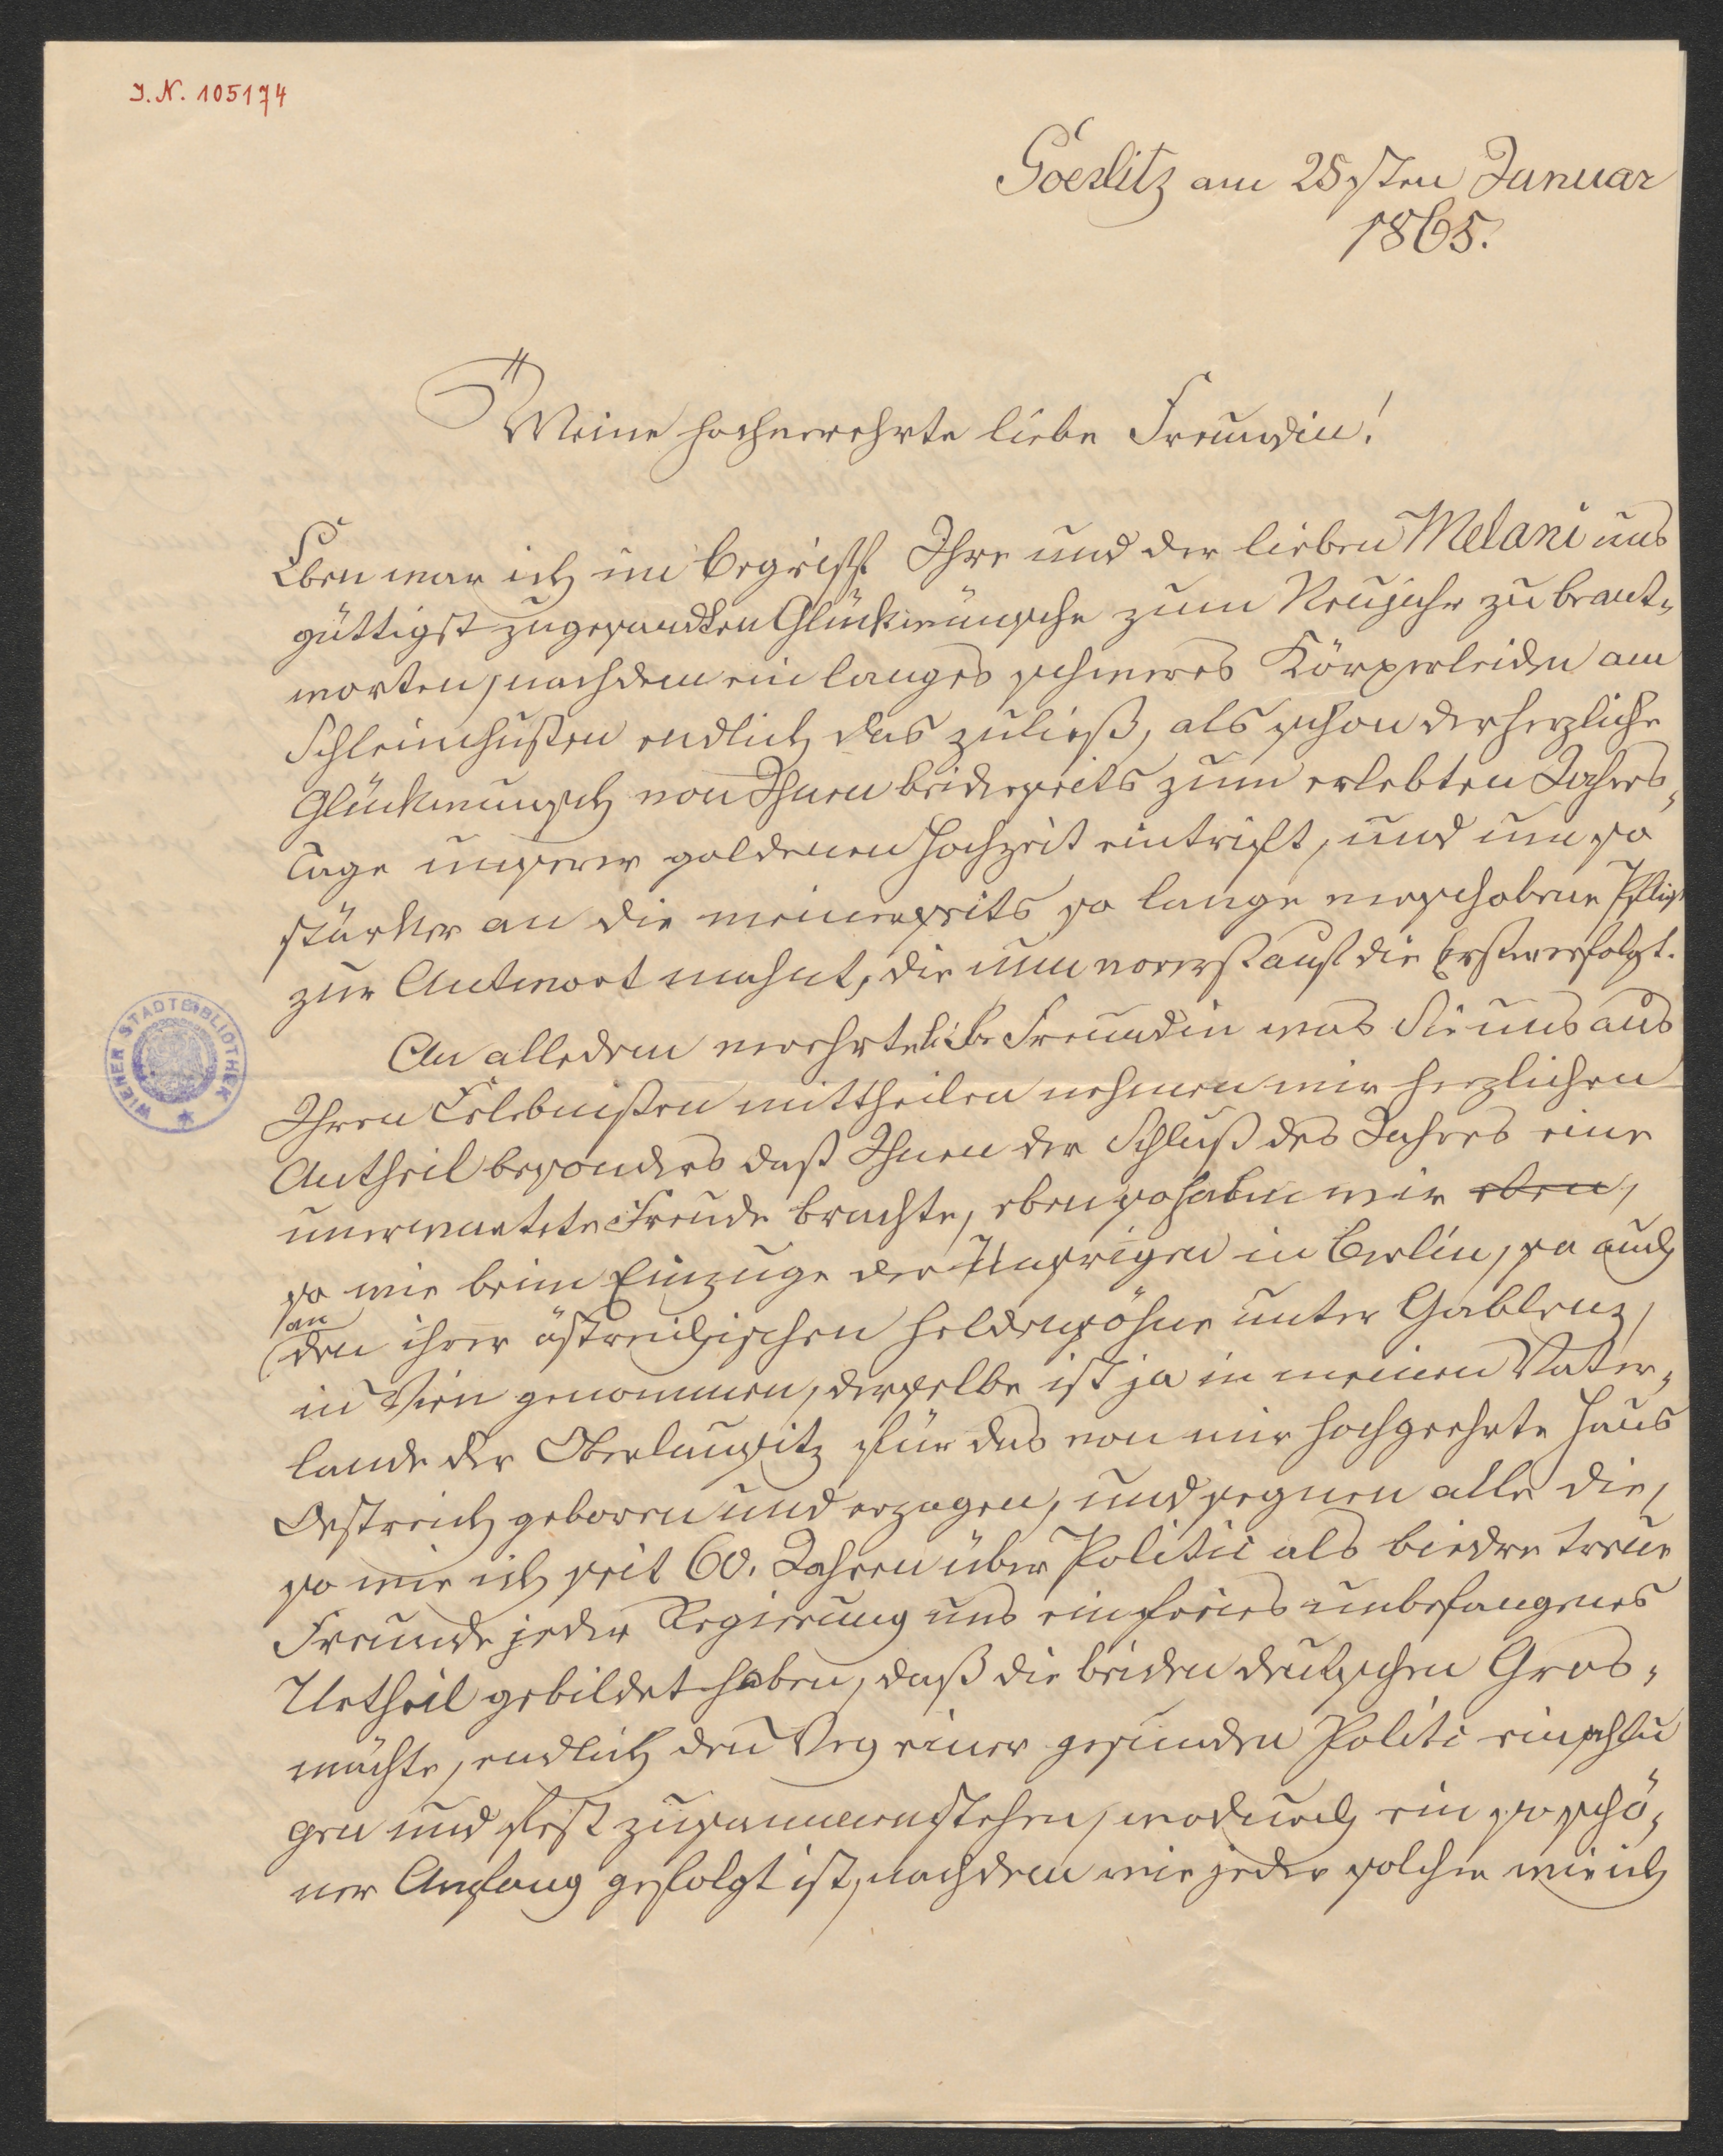 I.N. 105174
Goerlitz am 25sten Januar
1865.
Meine hochverehrte liebe Freundin!
Eben war ich im Begriff Ihre und der lieben Melani uns
güttigst zugesandten Glückwünsche zum Neujahr zu beant-
worten, nachdem ein langes schweres Körperleiden am
Schleimhusten endlich das zuließ, als schon der herzliche
Glückwunsch von Ihnen beiderseits zum erlebten Jahres-
tage unserer goldenen Hochzeit eintrifft, und um so
stärker an die meinerseits so lange verschobene Pflicht
zur Antwort mahnt, die nun vorerst auf die Erste erfolgt.
An alledem verehrte liebe Freundin was Sie uns aus
Ihren Erlebnißen mittheilen nehmen wir herzlichen
Antheil besonders daß Ihnen der Schluß des Jahres eine
unerwartete Freude brachte, eben so haben wir eben,
so wie beim Einzuge der Unsrigen in Berlin, so auch
an
den ihrer östreichischen Heldensöhne unter Gablenz,
in Wien genommen, derselbe ist ja in meinen Vater-
lande der Oberlausitz für das von mir hochgeehrte Haus
Oestreich geboren und erzogen, und segnen alle die,
so wie ich seit 60. Jahren über Politic als biedre treue
Freunde jeder Regierung uns ein freies unbefangenes
Urtheil gebildet haben, daß die beiden deutschen Gros-
mächte, endlich den Weg einer gesunden Politi einschlu
gen und fest zusammenstehen, wodurch ein so schö-
ner Anfang gefolgt ist, nachdem wie jeder solcher wie ich
WIENER STADTBIBLIOTHEK